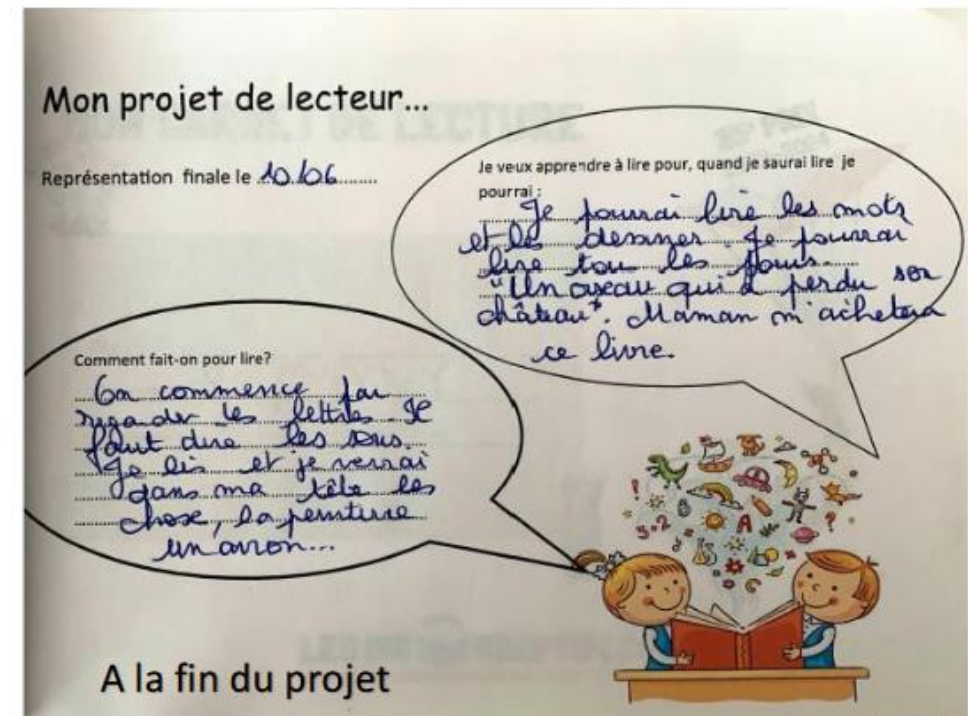 Mon projet de lecteur...
Représentation finale le 10/06
Je veux apprendre à lire pour, quand je saurai lire je
pourrai :
Je pourrai lire les mots
et les dessiner. Je pourrai
lire tous les jours.
"Un oiseau qui a perdu son
château". Maman m'achetera
ce livre.
Comment fait-on pour lire?
On commence par
regarder les lettres. Il
faut dire les sons.
Je lis et je verrai
dans ma tête les
chose, la peinture
un avion...
A la fin du projet